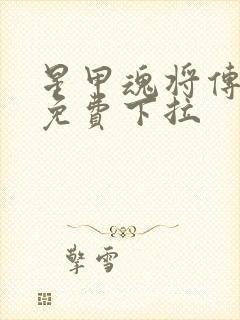 星甲魂将傳
免費下拉
擎雪